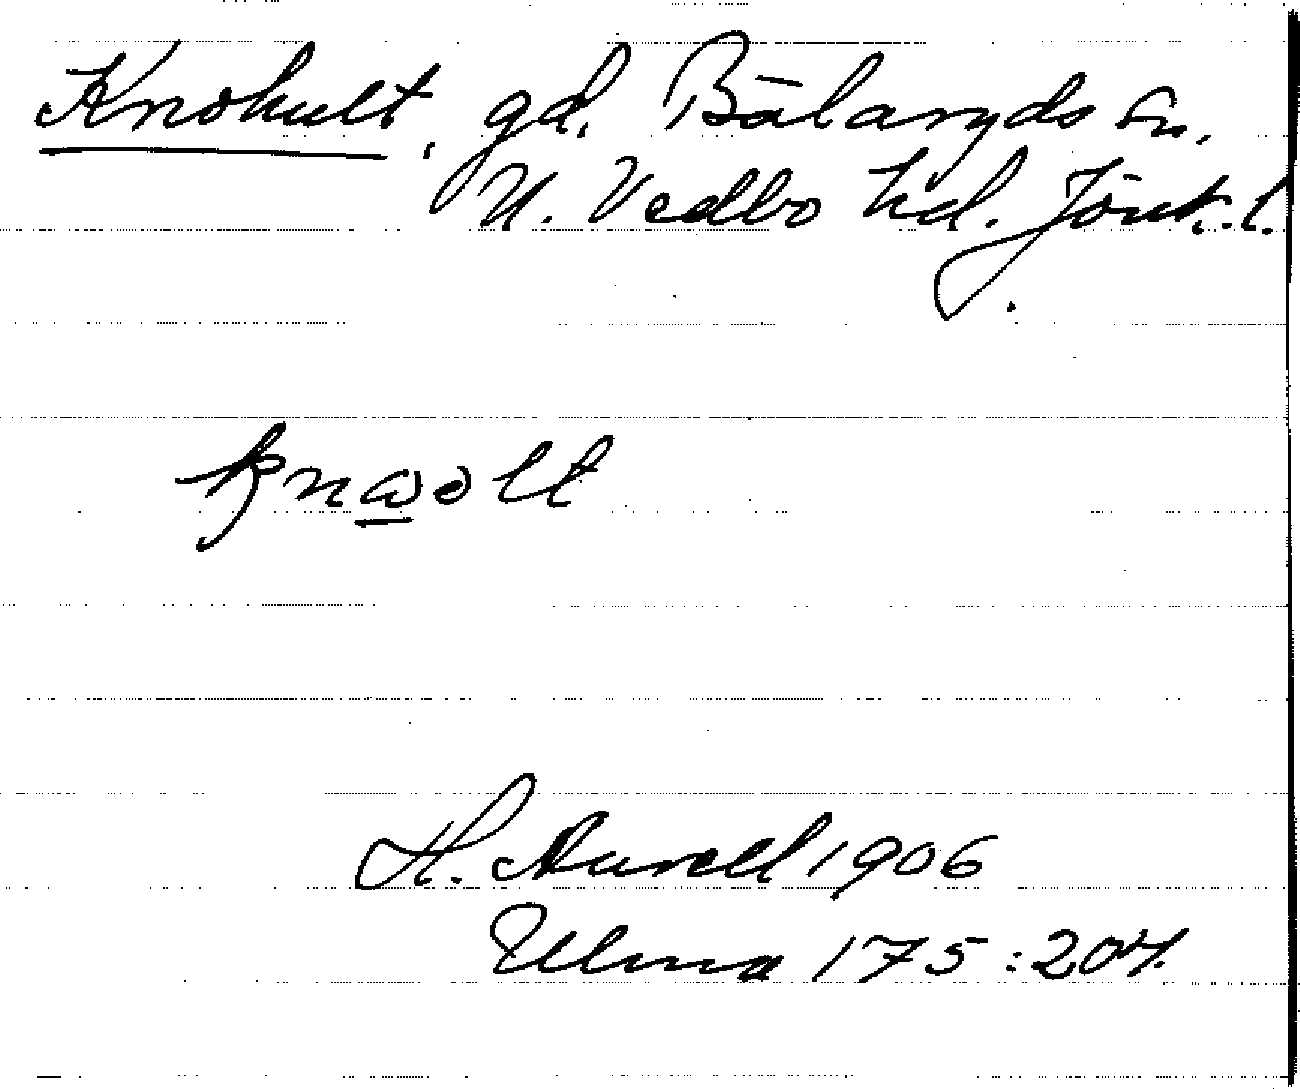 Knohult, gd. Bälaryds sn.
N. Vedbo hd. Jönk. l.
H. Aurell 1906
Ulma 175:204.